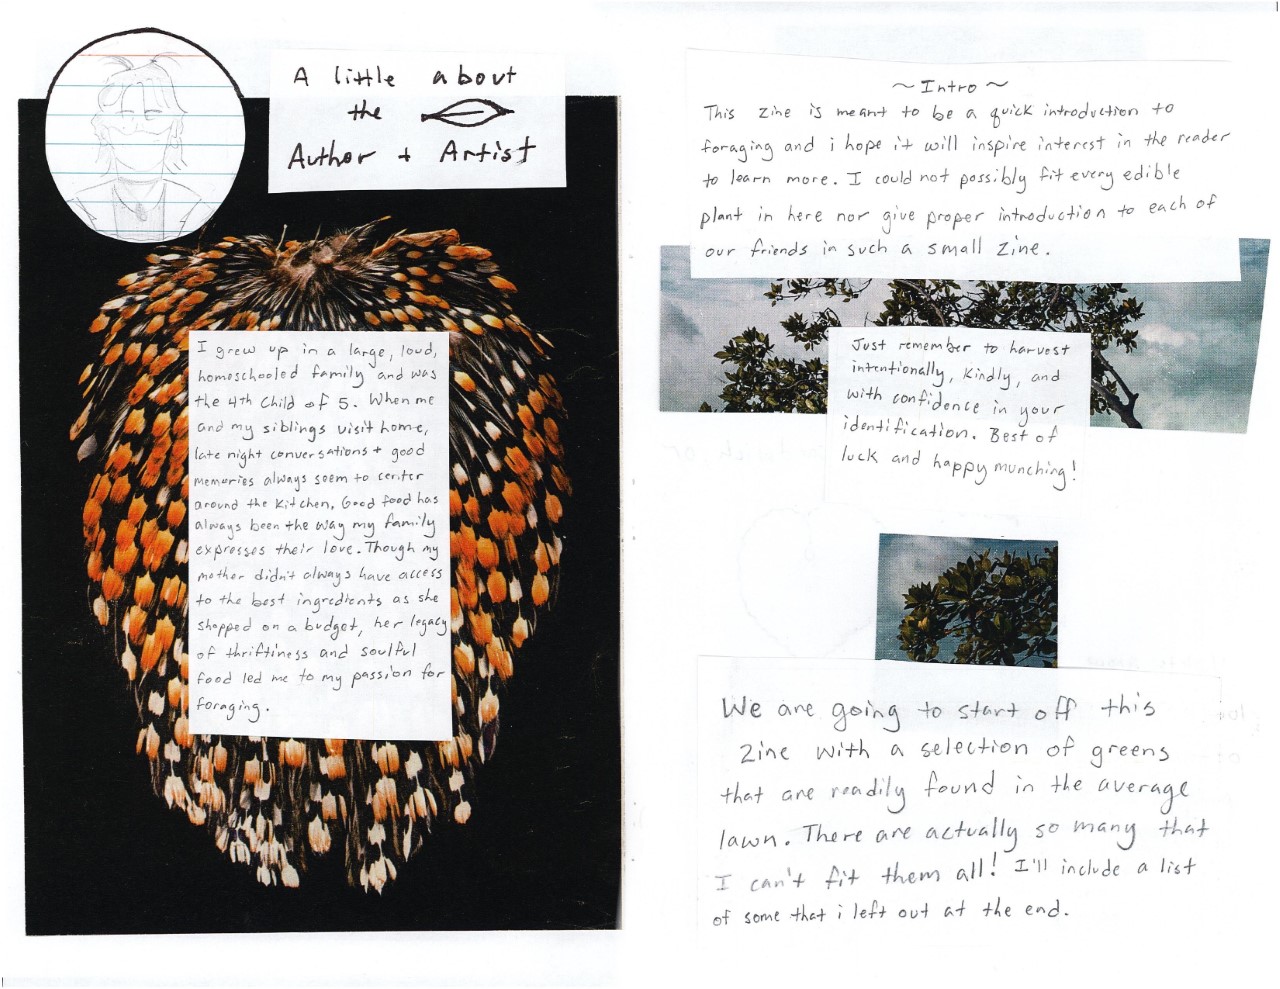 A little about
the
Author + Artist
I grew up in a large, loud,
homeschooled family and was
the 4th child of 5. When me
and my siblings visit home,
late night conversations + good
memories always seem to center
around the kitchen. Good food has
always been the way my family
expresses their love. Though my
mother didn't always have access
to the best ingredients as she
shopped on a budget, her legacy
of thriftiness and soulful
food led me to my passion for
foraging.
~Intro~
This zine is meant to be a quick introduction to
foraging and i hope it will inspire interest in the reader
to learn more. I could not possibly fit every edible
plant in here nor give proper introduction to each of
our friends in such a small zine.
Just remember to harvest
intentionally, kindly, and
with confidence in your
identification. Best of
luck and happy munching!
We are going to start off this
zine with a selection of greens
that are readily found in the average
lawn. There are actually so many that
I can't fit them all! I'll include a list
of some that i left out at the end.